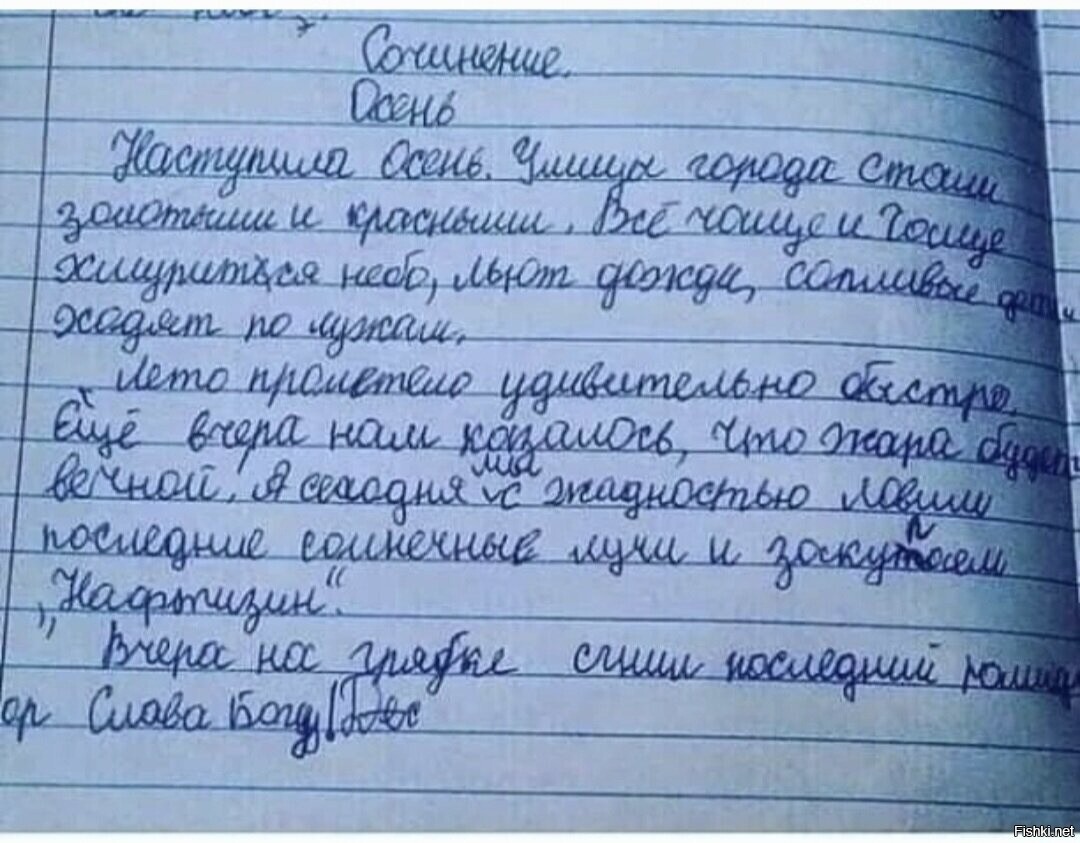 Сочинение.
Осень
Наступила Осень. Улицы города стали
золотыми и красными. Всё чаще и чаще
хмуриться небо, льют дожди, сопливые дети
ходят по лужам.
Лето пролетело удивительно быстро.
Ещё вчера нам казалось, что жара будет
вечной. А сегодня мы с жадностью ловим
последние солнечные лучи и закупаем
"Нафтизин".
Вчера на грядке сгнил последний помид
ор Слава Богу!
Fishki.net